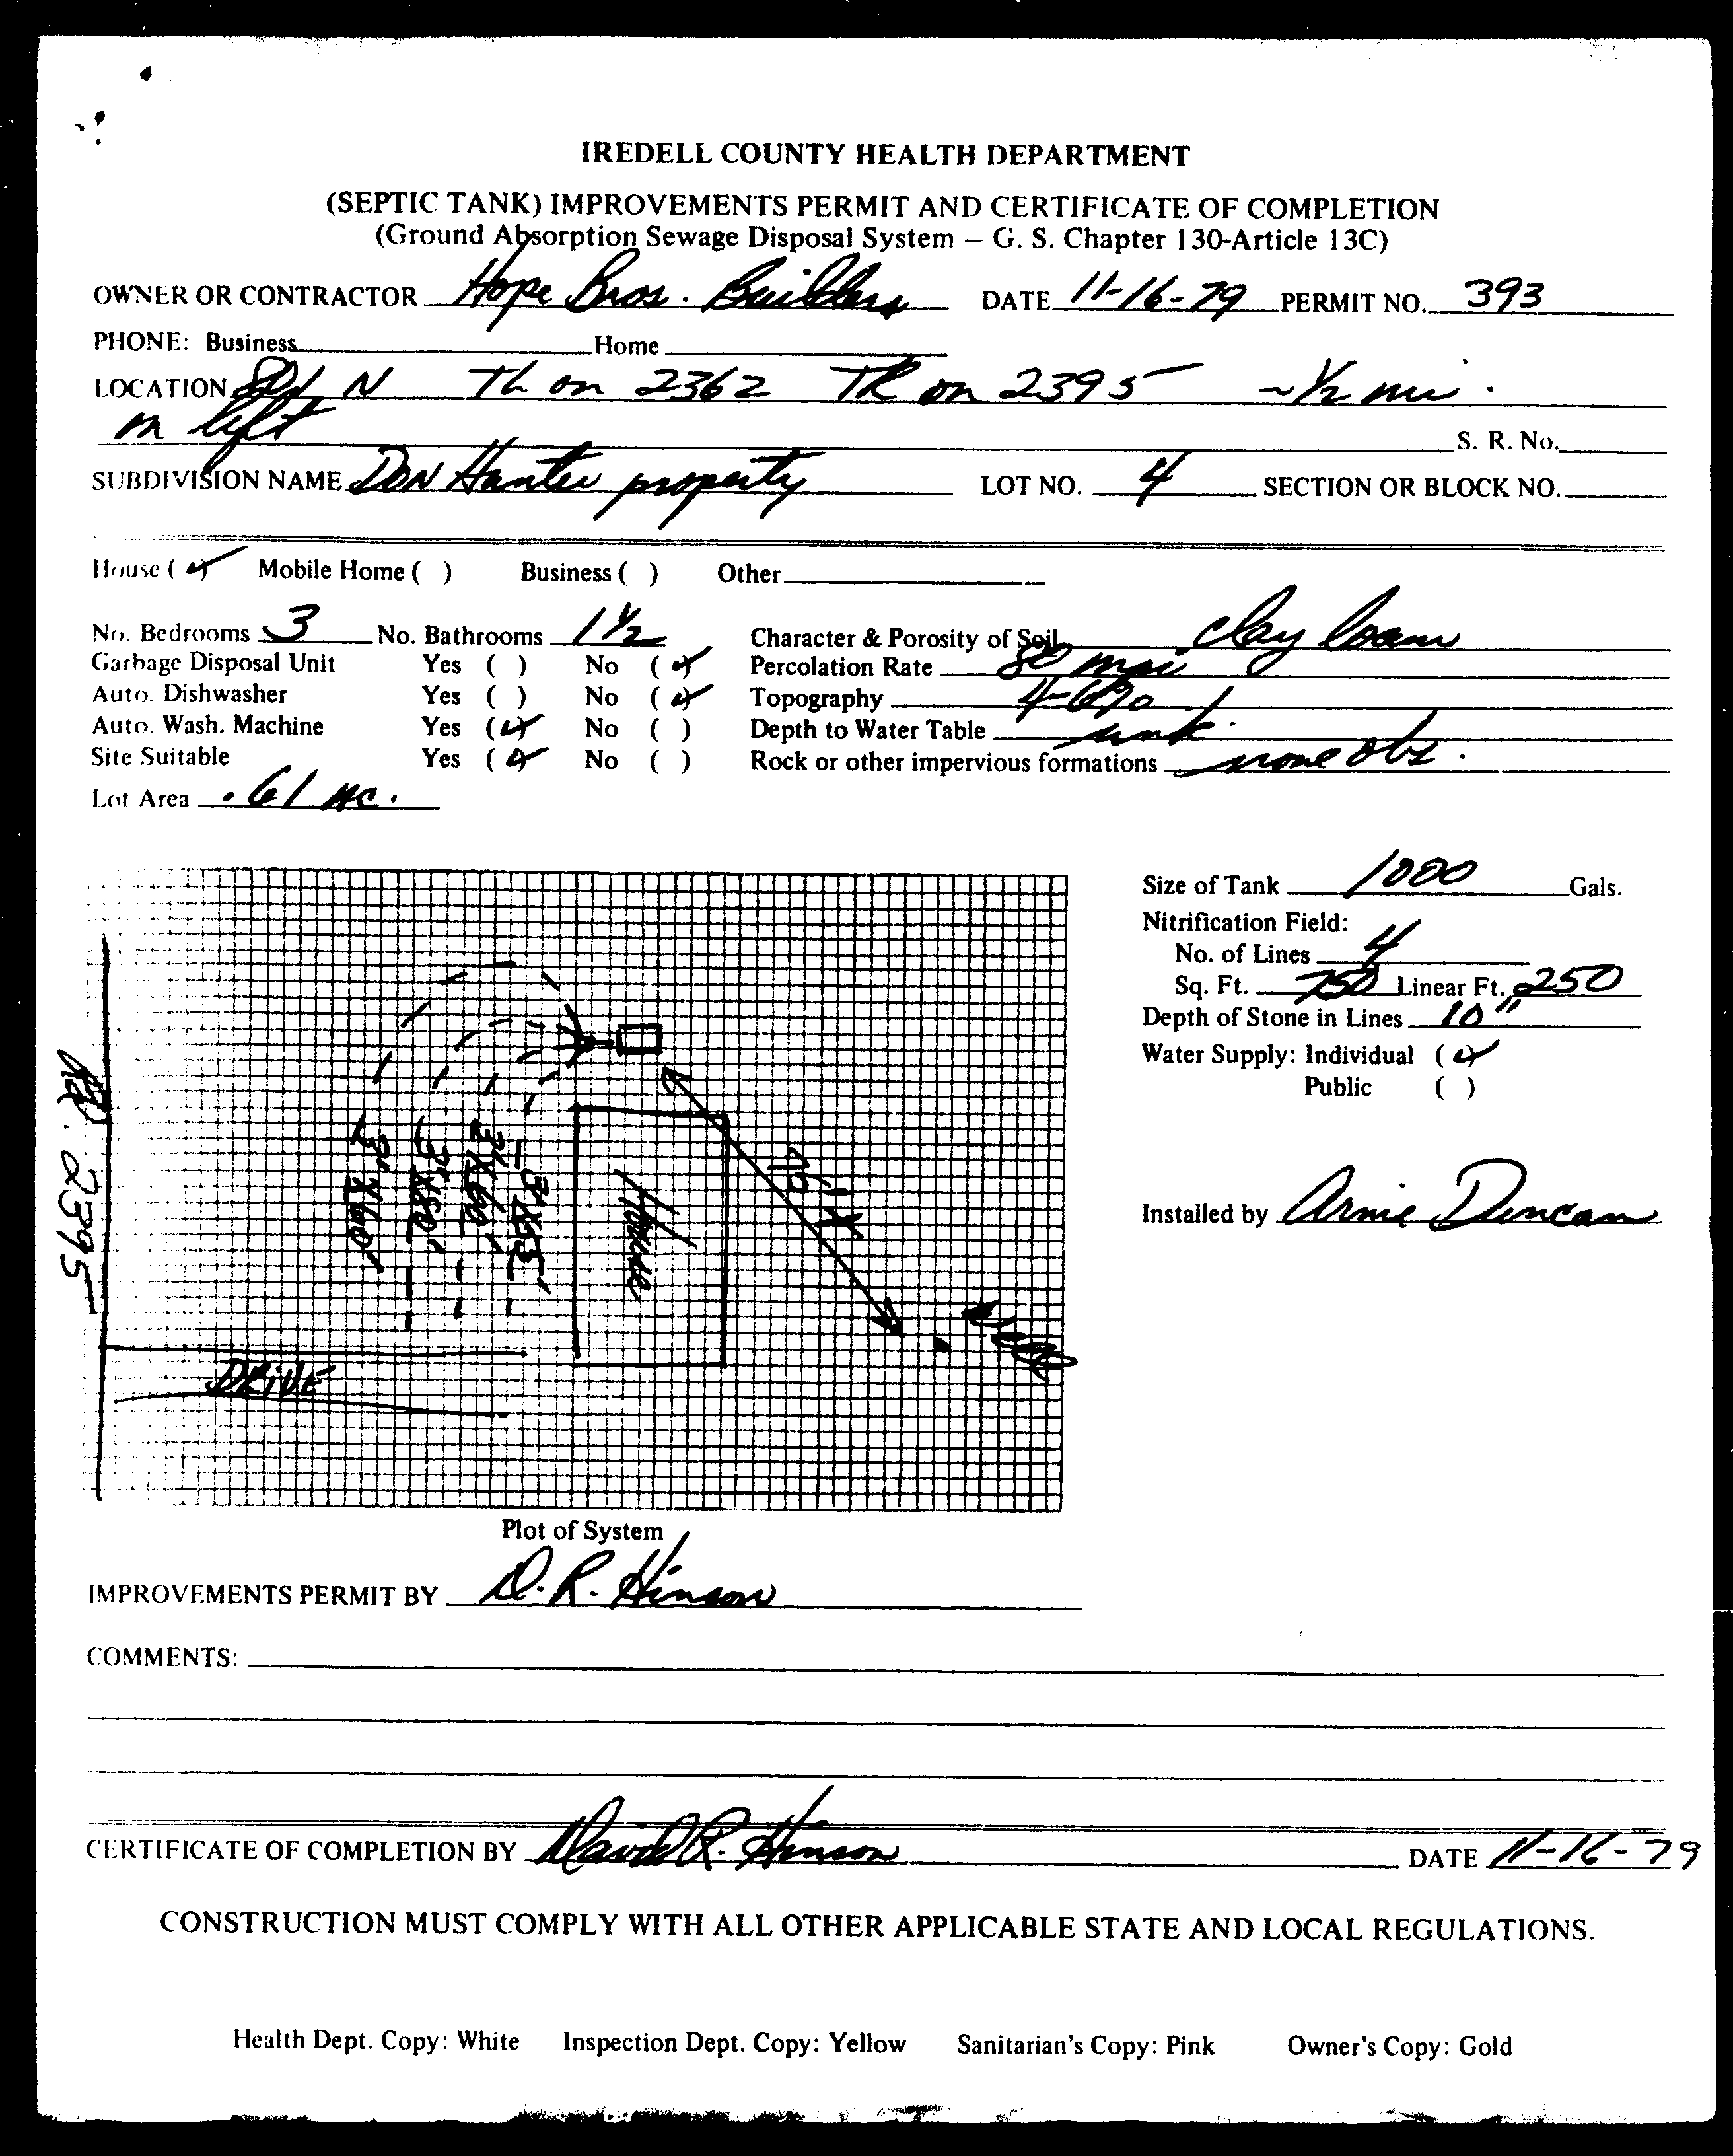 IREDELL COUNTY HEALTH DEPARTMENT
(SEPTIC TANK) IMPROVEMENTS PERMIT AND CERTIFICATE OF COMPLETION
(Ground Absorption Sewage Disposal System – G. S. Chapter 130-Article 13C)
OWNER OR CONTRACTOR Hope Bros. Builders DATE 11-16-79 PERMIT NO. 393
PHONE: Business Home
LOCATION N TL on 2362 TR on 2395 ~ 1/2 mi.
on left
S. R. No.
SUBDIVISION NAME Don property LOT NO. 4 SECTION OR BLOCK NO.
House (✓) Mobile Home ( ) Business ( ) Other
No. Bedrooms 3 No. Bathrooms 1 1/2 Character & Porosity of Soil clay loam
Garbage Disposal Unit Yes ( ) No (✓) Percolation Rate 80 mpi
Auto. Dishwasher Yes ( ) No (✓) Topography 4-6%
Auto. Wash. Machine Yes (✓) No ( ) Depth to Water Table unk.
Site Suitable Yes (✓) No ( ) Rock or other impervious formations none obs.
Lot Area .61 ac.
Size of Tank 1000 Gals.
Nitrification Field:
No. of Lines 4
Sq. Ft. 750 Linear Ft. 250
Depth of Stone in Lines 10"
Water Supply: Individual (✓)
Public ( )
Installed by Arnie Duncan
Rd. 2395
3'X60'
3'X60'
House
well
DRIVE
Plot of System
IMPROVEMENTS PERMIT BY D. R. Hinson
COMMENTS:
CERTIFICATE OF COMPLETION BY David R. Hinson DATE 11-16-79
CONSTRUCTION MUST COMPLY WITH ALL OTHER APPLICABLE STATE AND LOCAL REGULATIONS.
Health Dept. Copy: White Inspection Dept. Copy: Yellow Sanitarian's Copy: Pink Owner's Copy: Gold